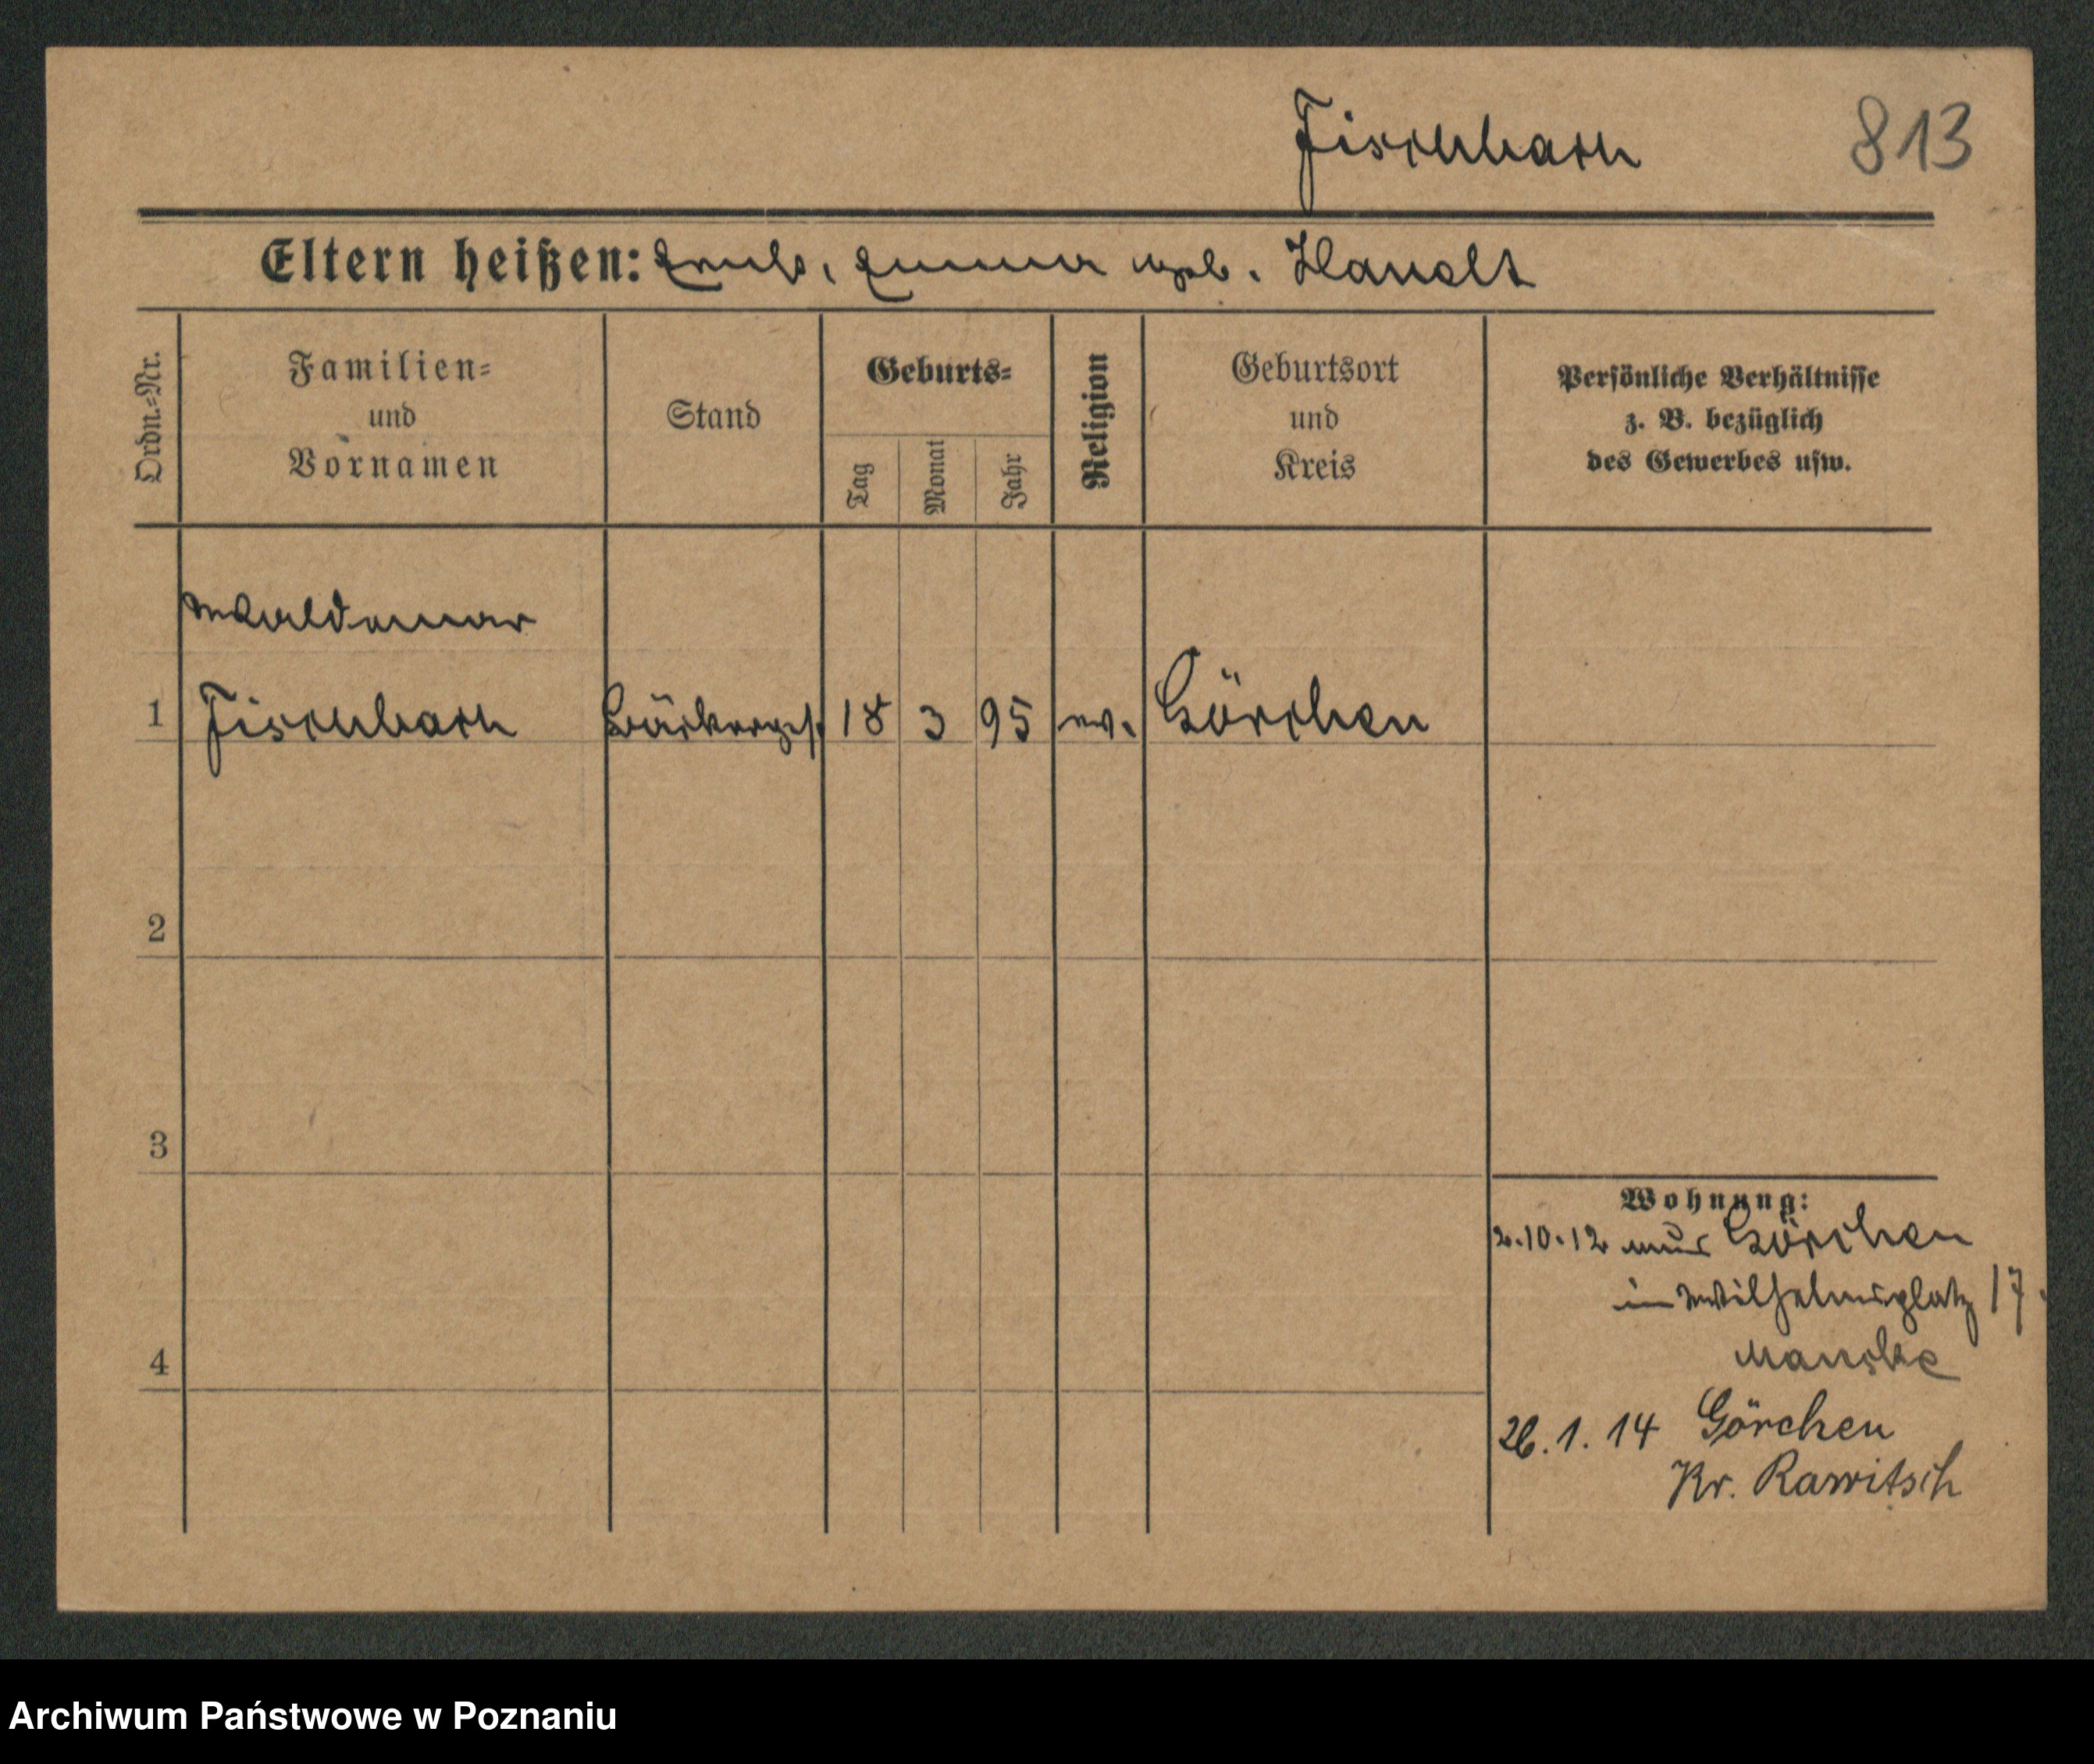 Fischbach 813
Eltern heißen: Emil, Emma geb. Handt
Ordn.-Nr.
Familien-
und
Vornamen
Stand
Geburts-
Tag
Monat
Jahr
Religion
Geburtsort
und
Kreis
Persönliche Verhältnisse
z. B. bezüglich
des Gewerbes usw.
Waldemar
1 Fischbach Bäckerges. 18 3 95 ev. Görchen
2
3
4
Wohnung:
2.10.12 aus Görchen
in Wilhelmsplatz 17.
Manske
26.1.14 Görchen
Kr. Rawitsch
Archiwum Państwowe w Poznaniu